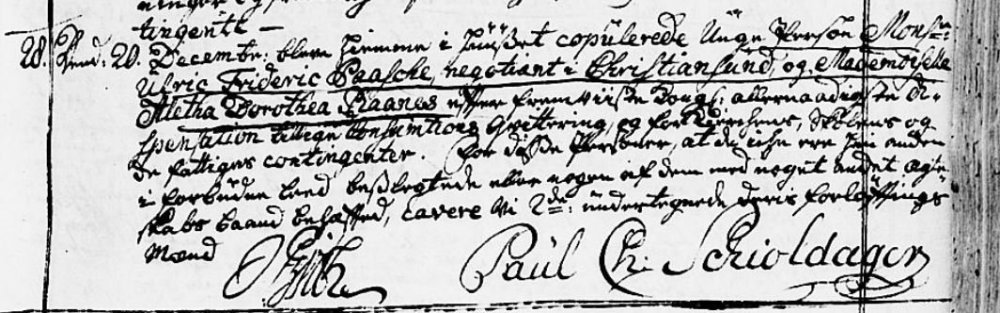 tingente —
28. Vend: 20. Decembr. bleve hiemme i Huuset copülerede Unge Person Monsr:
Ulric Frideric Paasche, negotiant i Christiansund, og Mademoiselle
Aletha Dorothea Raanes efter fremviiste Kongl: allernaadigste Di-
spensation tillige Consumtions Qvittering, og for Kirchens, Skolens og
de fattiges contingenter. For disse Personer, at de icke ere hin anden
i forbudne Leed beslegtede eller nogen af dem med noget andet Egte-
skabs baand behæfted, cavere Vi 2de: undertegnede deris forlovings
Mænd
Paül Chr. Schioldager